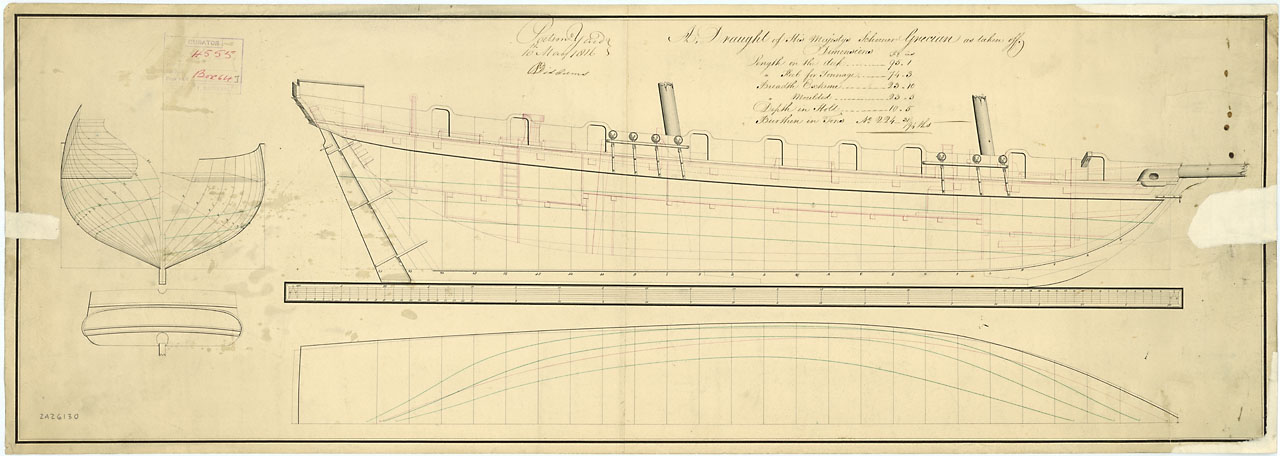 CURATOR
4555
Box 64
10 May 1816
A Draught of His Majestys Schooner Grecian as taken off
Dimensions
Ft ins
Length on the deck 95 .. 1
" Keel for Tonnage 74 .. 3
Breadth Extreme 23 .. 10
" Moulded 23 .. 3
Depth in Hold 10 .. 5
Burthen in Tons No 224
ZAZ6130